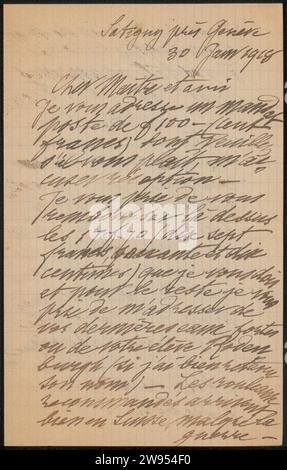 Satigny près Genève
30 Janv 1918
Cher Maître et ami
Je vous adresse un mandat
poste de f 100 - (cent
francs) dont veuillez
s'il vous plaît m'ac
cuser réception -
Je vous prie de vous
rembourser là dessus
les (sept
francs soixante et dix
centimes) que je vous dois
et pour le reste je vous
prie de m'adresser de
vos dernières eaux fortes
ou de votre élève
(si j'ai bien retenu
son nom) - Les rouleaux
recommandés arrivent
bien en Suisse, malgré la
guerre -
alamy
Image ID: 2W954F0
www.alamy.com